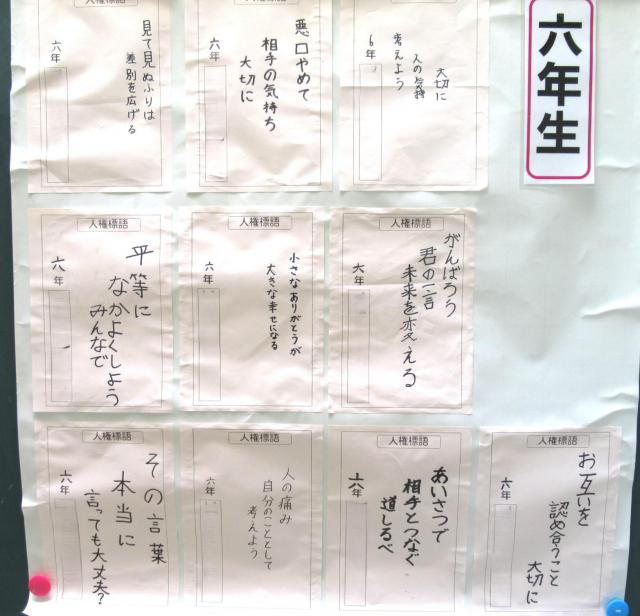 六年生
人権標語
大切に
人の気持
考えよう
6年
人権標語
悪口やめて
相手の気持ち
大切に
六年
人権標語
見て見ぬふりは
差別を広げる
六年
人権標語
がんばろう
君の一言
未来を変える
六年
人権標語
小さなありがとうが
大きな幸せになる
六年
人権標語
平等に
なかよくしよう
みんなで
六年
人権標語
お互いを
認め合うこと
大切に
六年
人権標語
あいさつで
相手とつなぐ
道しるべ
六年
人権標語
人の痛み
自分のこととして
考えよう
六年
人権標語
その言葉
本当に
言っても大丈夫?
六年